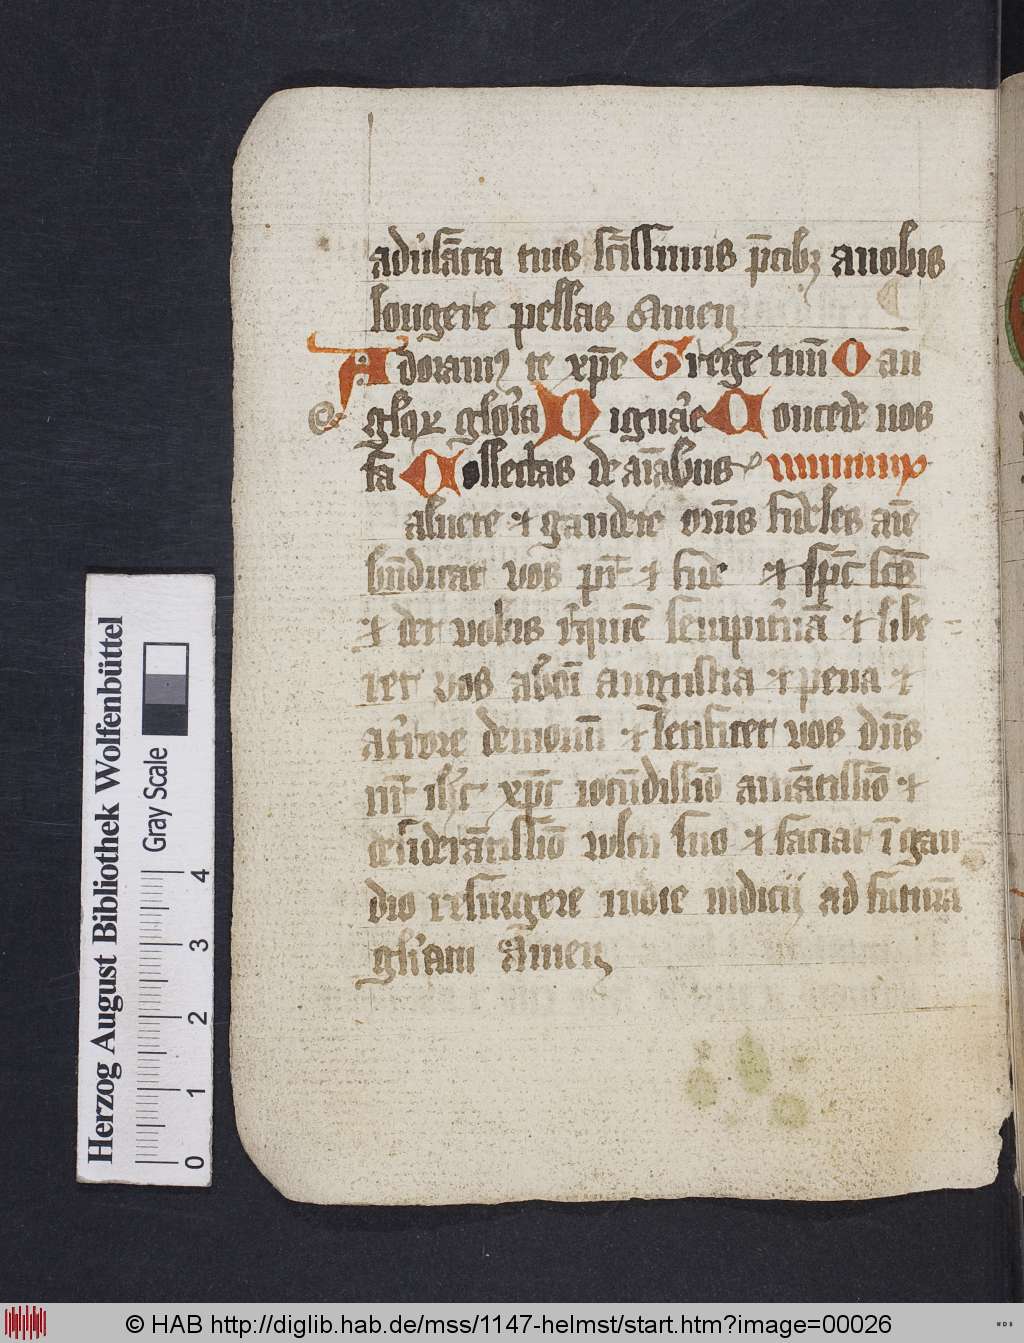 adv̓sācia tuis scīssimis p̄cibꝫ a nobis
longere pellas Amen
Adoramꝰ te xp̄e Gregē tuū O an
gloꝝ glo̓ia Dignae Concede nos
ta Collectas de aīabus
aluete ⁊ gaudete om̄s fideles aīe
bn̄dicat vos pr̄ ⁊ filiꝰ ⁊ sp̄c scūs
⁊ det vobis req̓uiē sempit̓nā ⁊ libe=
ret vos ab o̓i angustia ⁊ pena ⁊
a demonū ⁊ letificet vos dn̄s
nr̄ ih̓c xp̄c iocūdissīo amātissīo ⁊
desiderātissīo vultu suo ⁊ faciat ī gau
dio resurgere in die iudicij ad futurā
gl̓iam Amen
Herzog August Bibliothek Wolfenbüttel
Gray Scale
0 1 2 3 4
© HAB http://diglib.hab.de/mss/1147-helmst/start.htm?image=00026